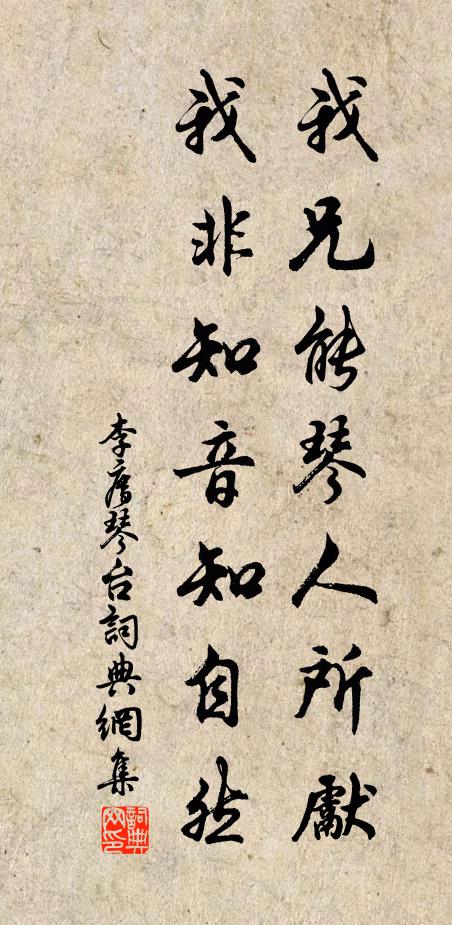 我兄能琴人所獻
我非知音知自然
李廌琴台詞典網集
詞典
网印